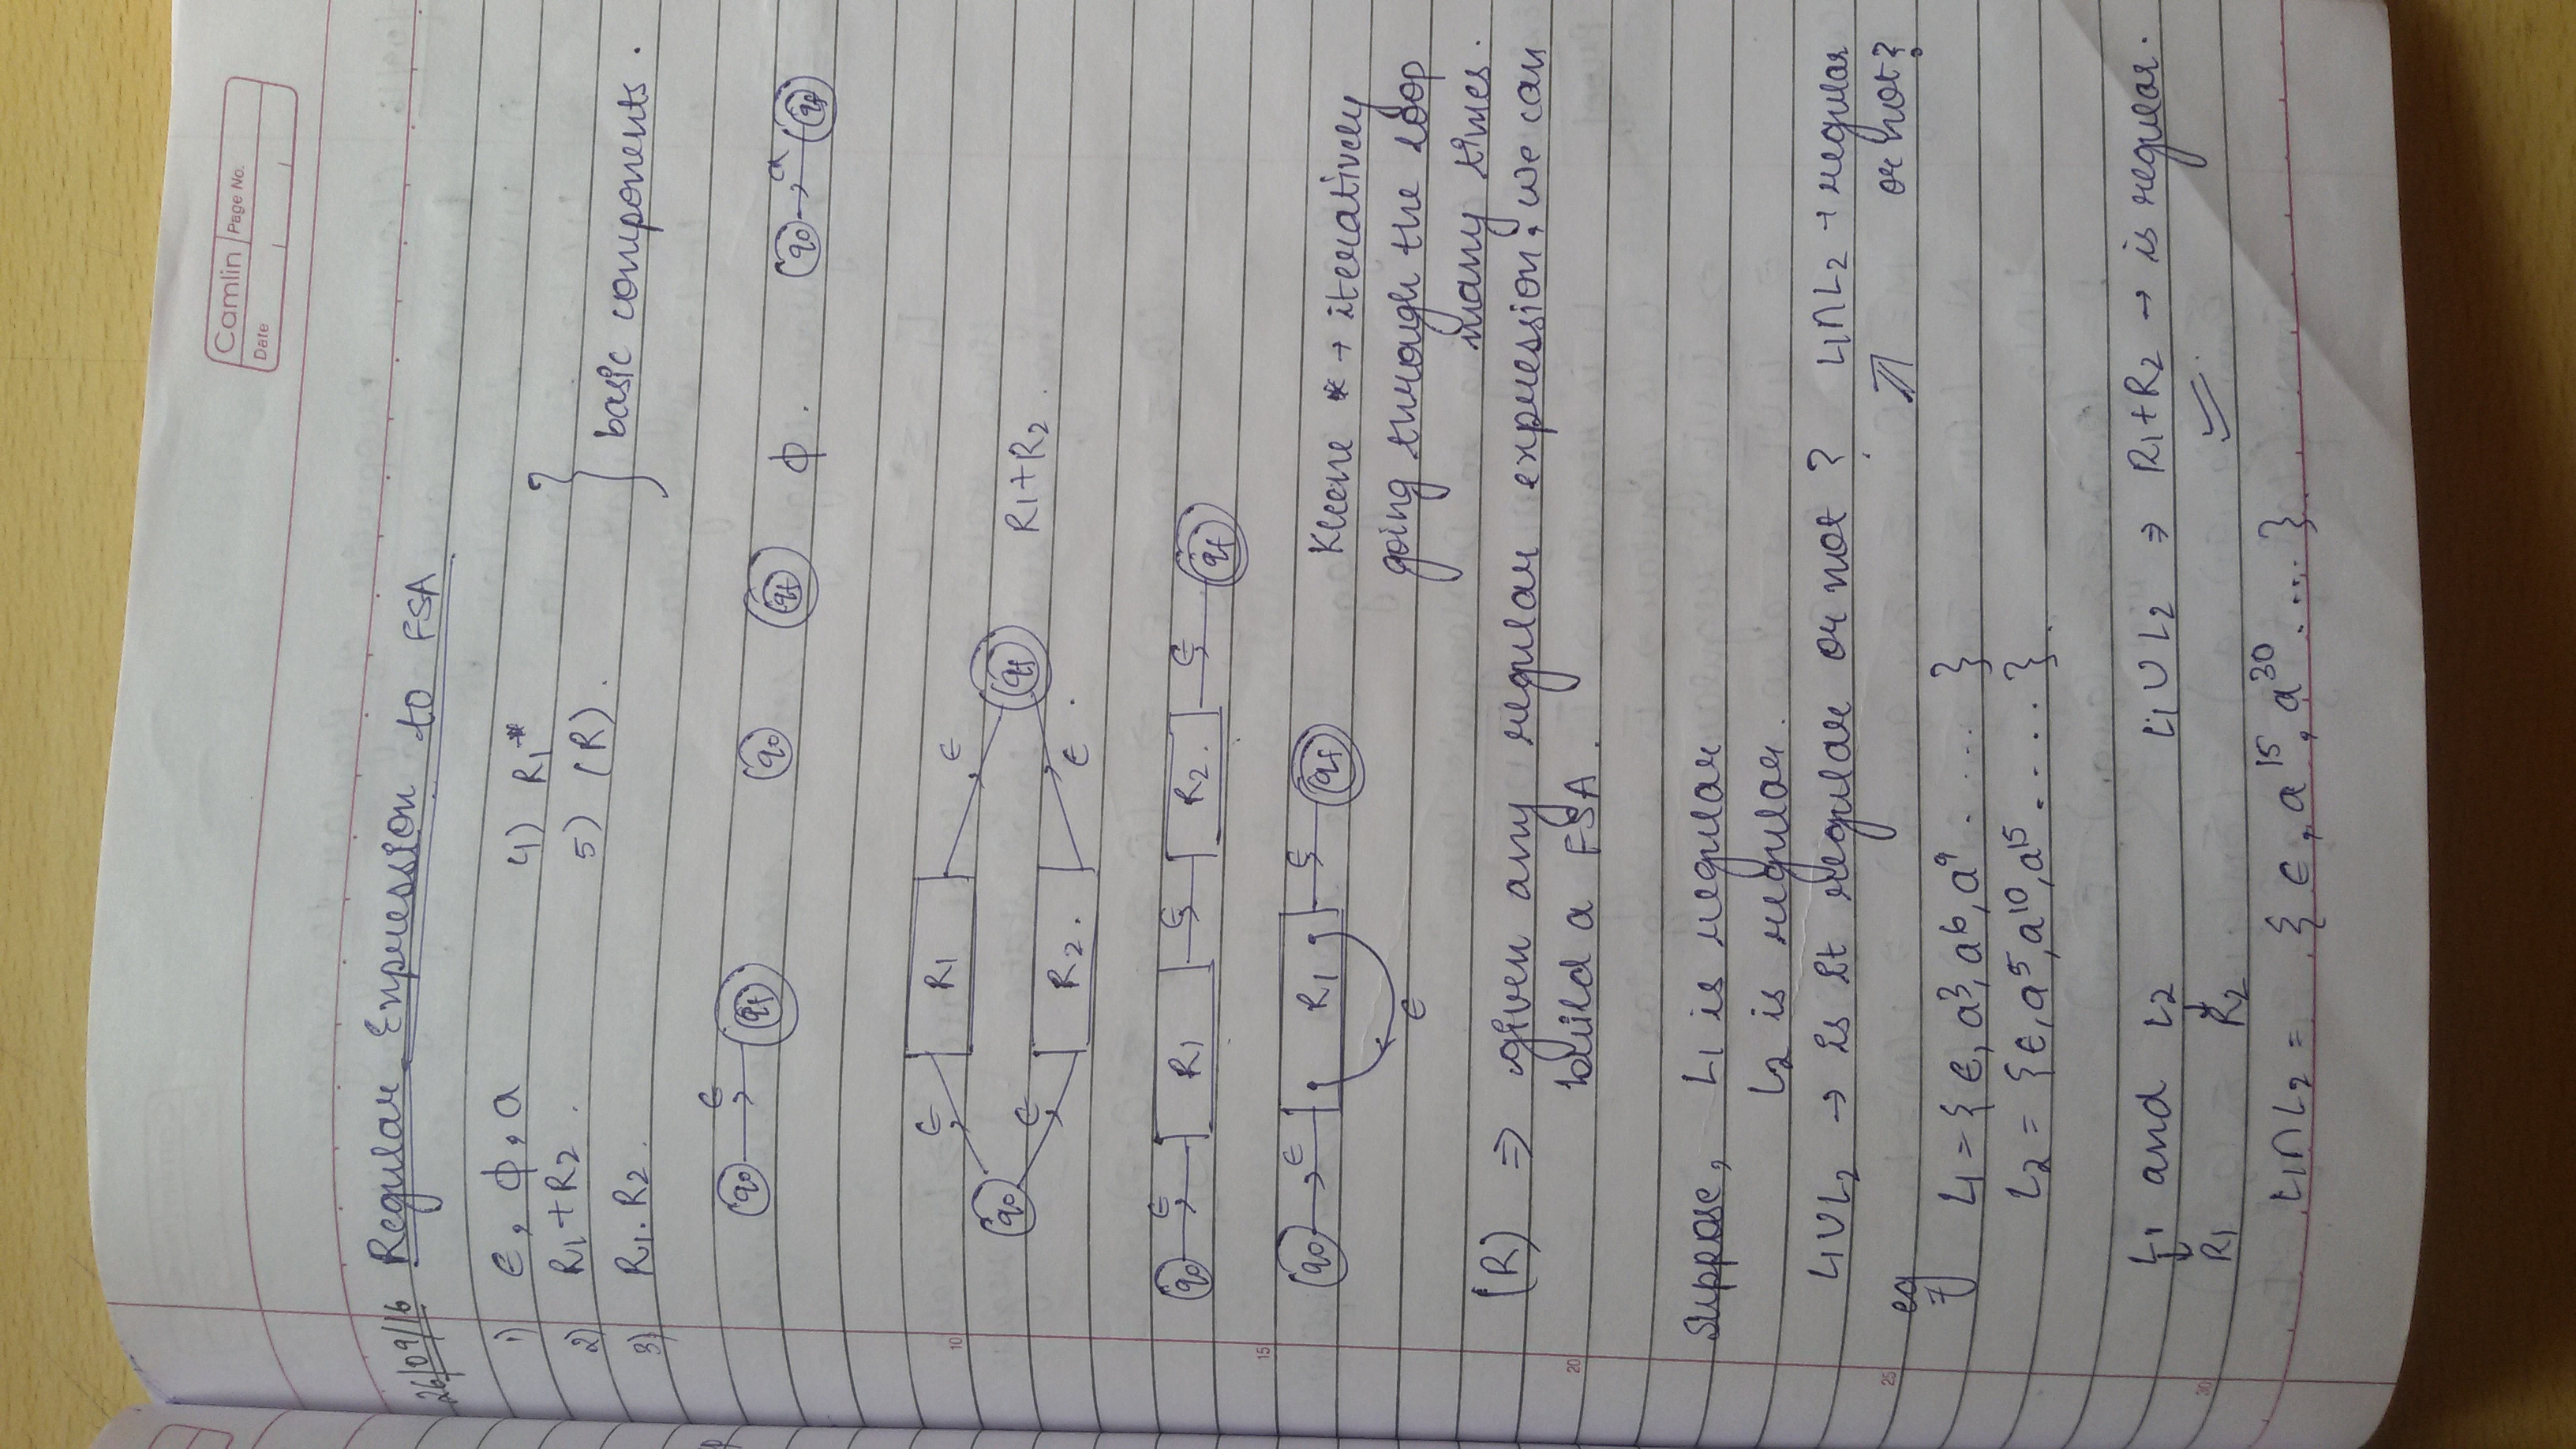 Camlin Page No.
Date
26/09/16 Regular Expression to FSA
1) ϵ, ϕ, a 4) R1*
2) R1+R2. 5) (R).
3) R1.R2. basic components.
q0 ϵ qf q0 qf ϕ. q0 a qf
ϵ R1 ϵ
10
q0 qf R1+R2.
ϵ R2. ϵ
q0 ϵ R1 ϵ R2. ϵ qf
15
q0 ϵ R1 ϵ qf
ϵ
Kleene * → iteratively
going through the loop
many times.
(R) ⇒ given any regular expression, we can
20
build a FSA.
Suppose, L1 is regular
L2 is regular.
L1∪L2 → is it regular or not? L1∩L2 → regular
25
or not?
eg
L1 = {ϵ, a³, a⁶, a⁹ ..... }
L2 = {ϵ, a⁵, a¹⁰, a¹⁵ ..... }.
L1 and L2 L1 ∪ L2 ⇒ R1+R2 → is regular.
30
R1 R2
L1∩L2 = { ϵ, a¹⁵, a³⁰ .... }.